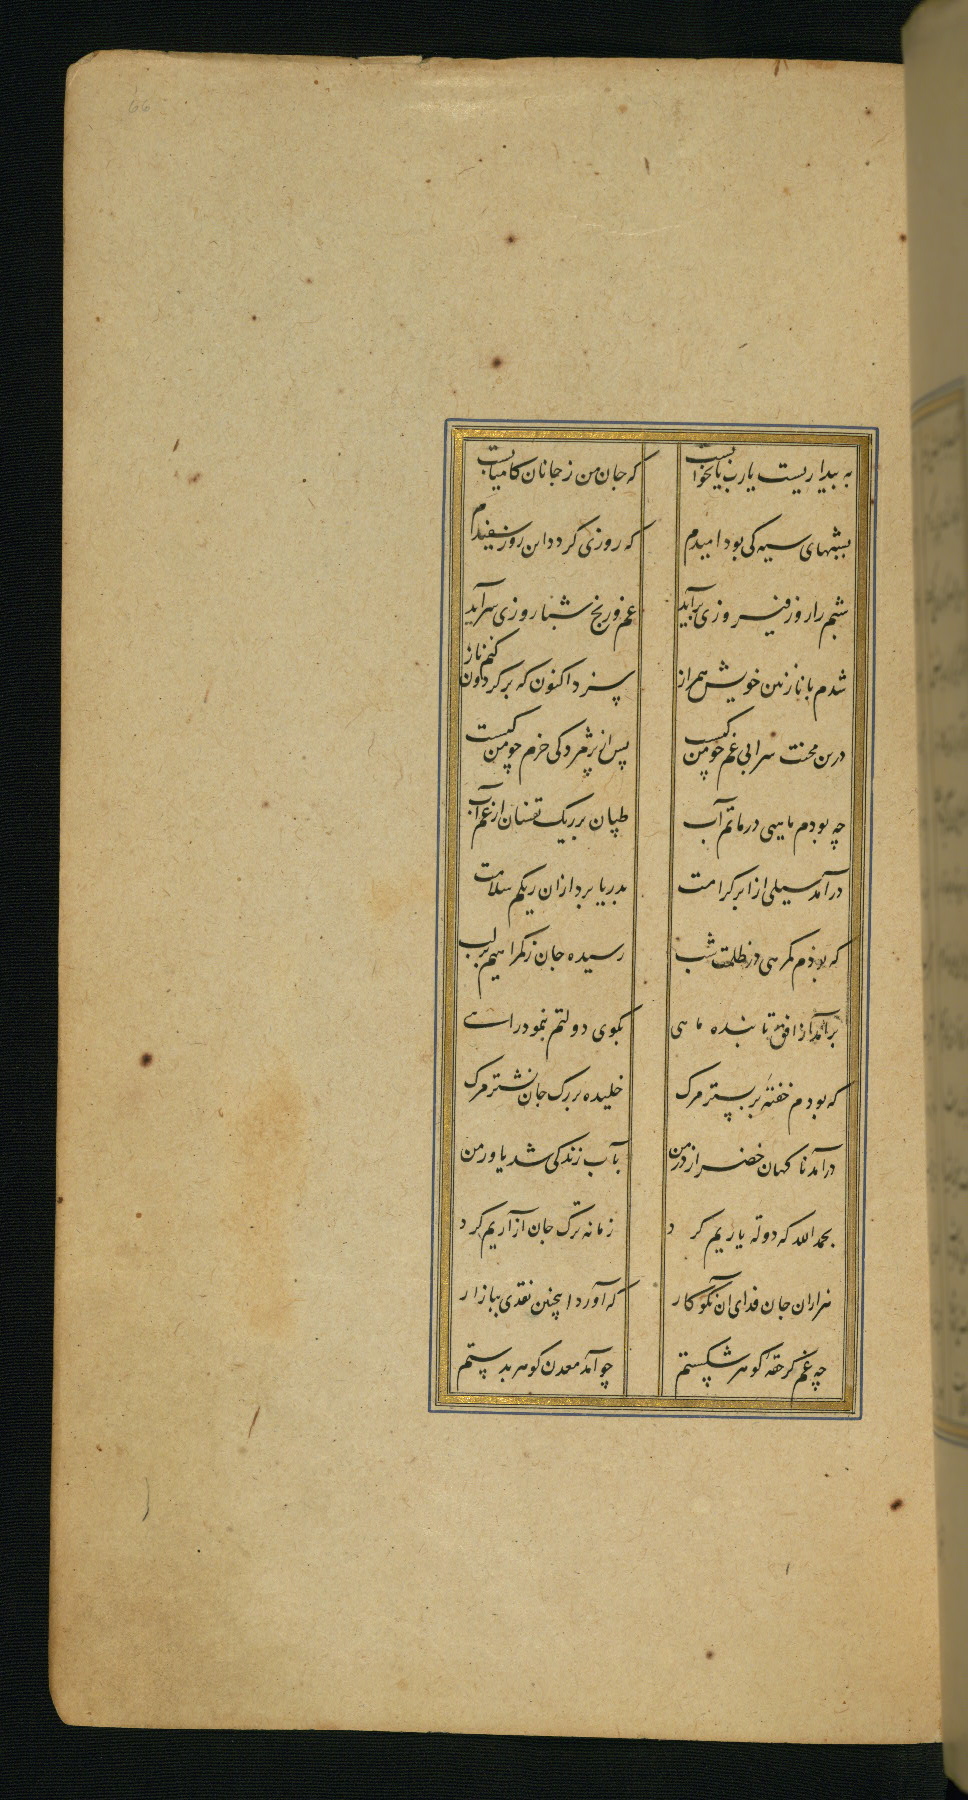 66
به بیداریست یارب یا بخوابست که جان من ز جانان کامیابست
بشبهای سیه کی بود امیدم که روزی کردد این روز سفیدم
شبم را روز فیروزی برآید غم و رنج شباروزی سرآید
شدم با نازنین خویش همراز سزد اکنون که بر کردون کنم ناز
درین محنت سرا بی غم چو من کیست پس از پژمردکی خرم چو من کیست
چه بودم ماهیی در ماتم آب طپان بر ریک تفسان از غم آب
درآمد سیلی از ابر کرامت بدریا برد ازان ریکم سلامت
که بودم کمرهی در ظلمت شب رسیده جان ز کمراهیم بر لب
برآمد از افق تابنده ماهی بکوی دولتم بنمود راهی
که بودم خفته بر بستر مرک خلیده بر رک جان نشتر مرک
درآمد ناکهان خضر از در من بآب زندکی شد یاور من
بحمد الله که دولت یاریم کرد زمانه ترک جان آزاریم کرد
هزاران جان فدای آن نکوکار که آورد اینچنین نقدی ببازار
چه غم کر حقه کوهر شکستم چو آمد معدن کوهر بدستم